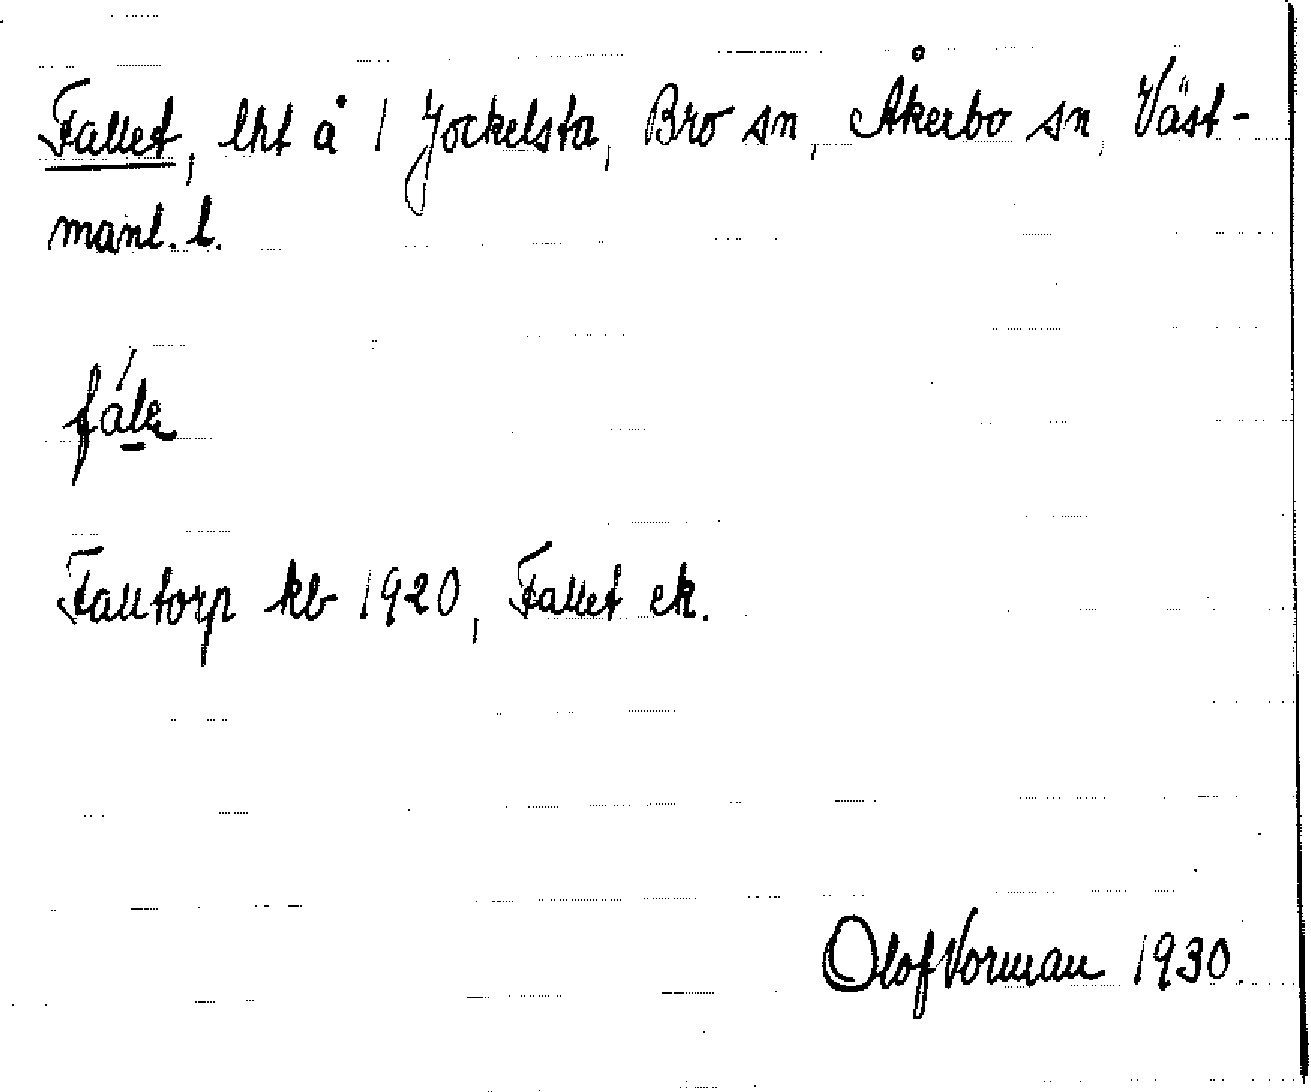 Fallet, lht å 1 Jockelsta, Bro sn, Åkerbo sn, Väst-
manl. l.
fálɛ
Falltorp kb 1920, Fallet ek.
Olof Vorman 1930.